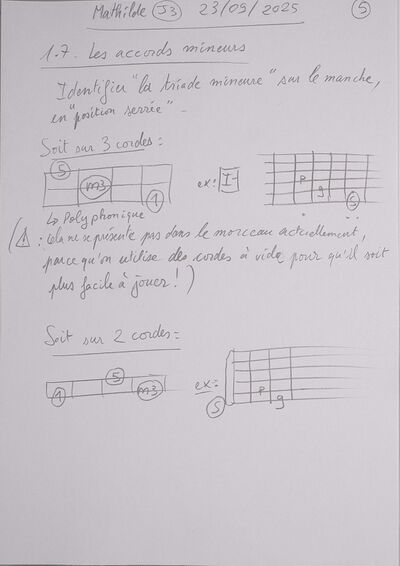 Mathilde J3 23/09/2025 5
1.7. Les accords mineurs
Identifier "la triade mineure" sur le manche,
en "position serrée".
Soit sur 3 cordes :
5
m3
1
ex: I-
P
g
S
↳ Polyphonique
(⚠ : Cela ne se présente pas dans le morceau actuellement,
parce qu'on utilise des cordes à vide pour qu'il soit
plus facile à jouer ! )
Soit sur 2 cordes :
1
5
m3
ex:
S
P
g